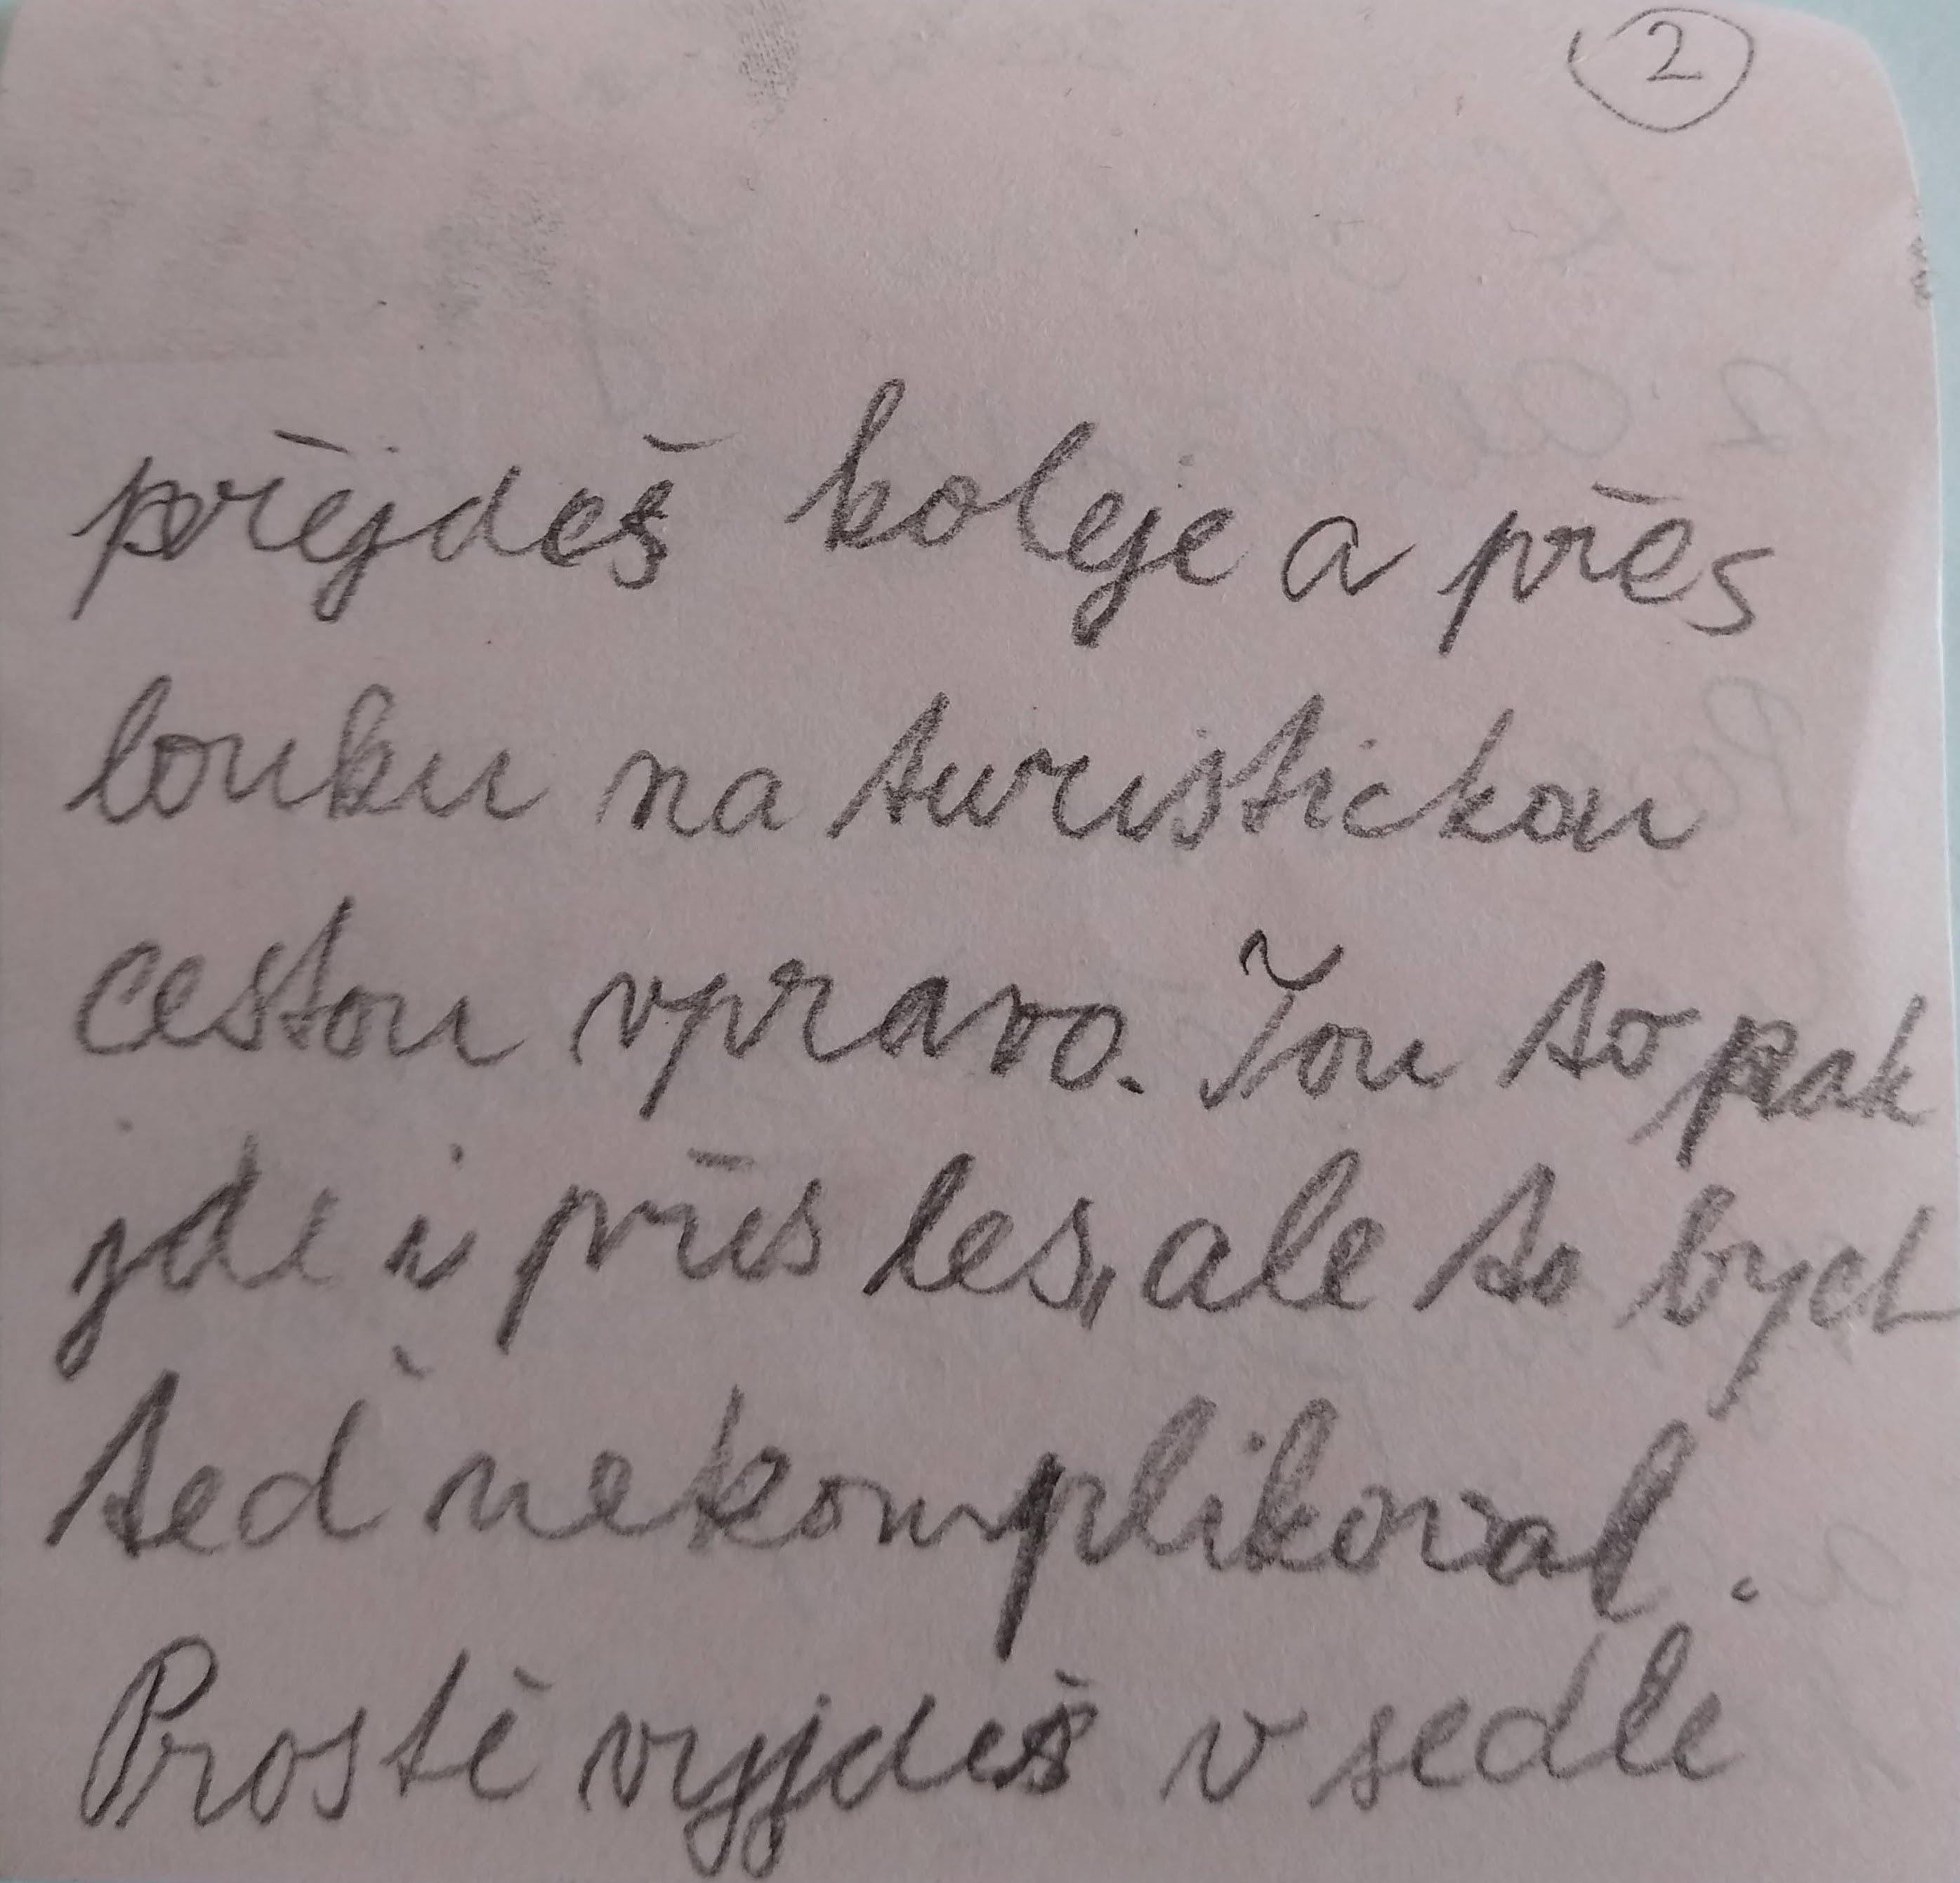 2
přejdeš koleje a přes
louku na turistickou
cestou vpravo. Tou to pak
jde i přes les, ale to bych
teď nekomplikoval.
Prostě vyjdeš v sedle